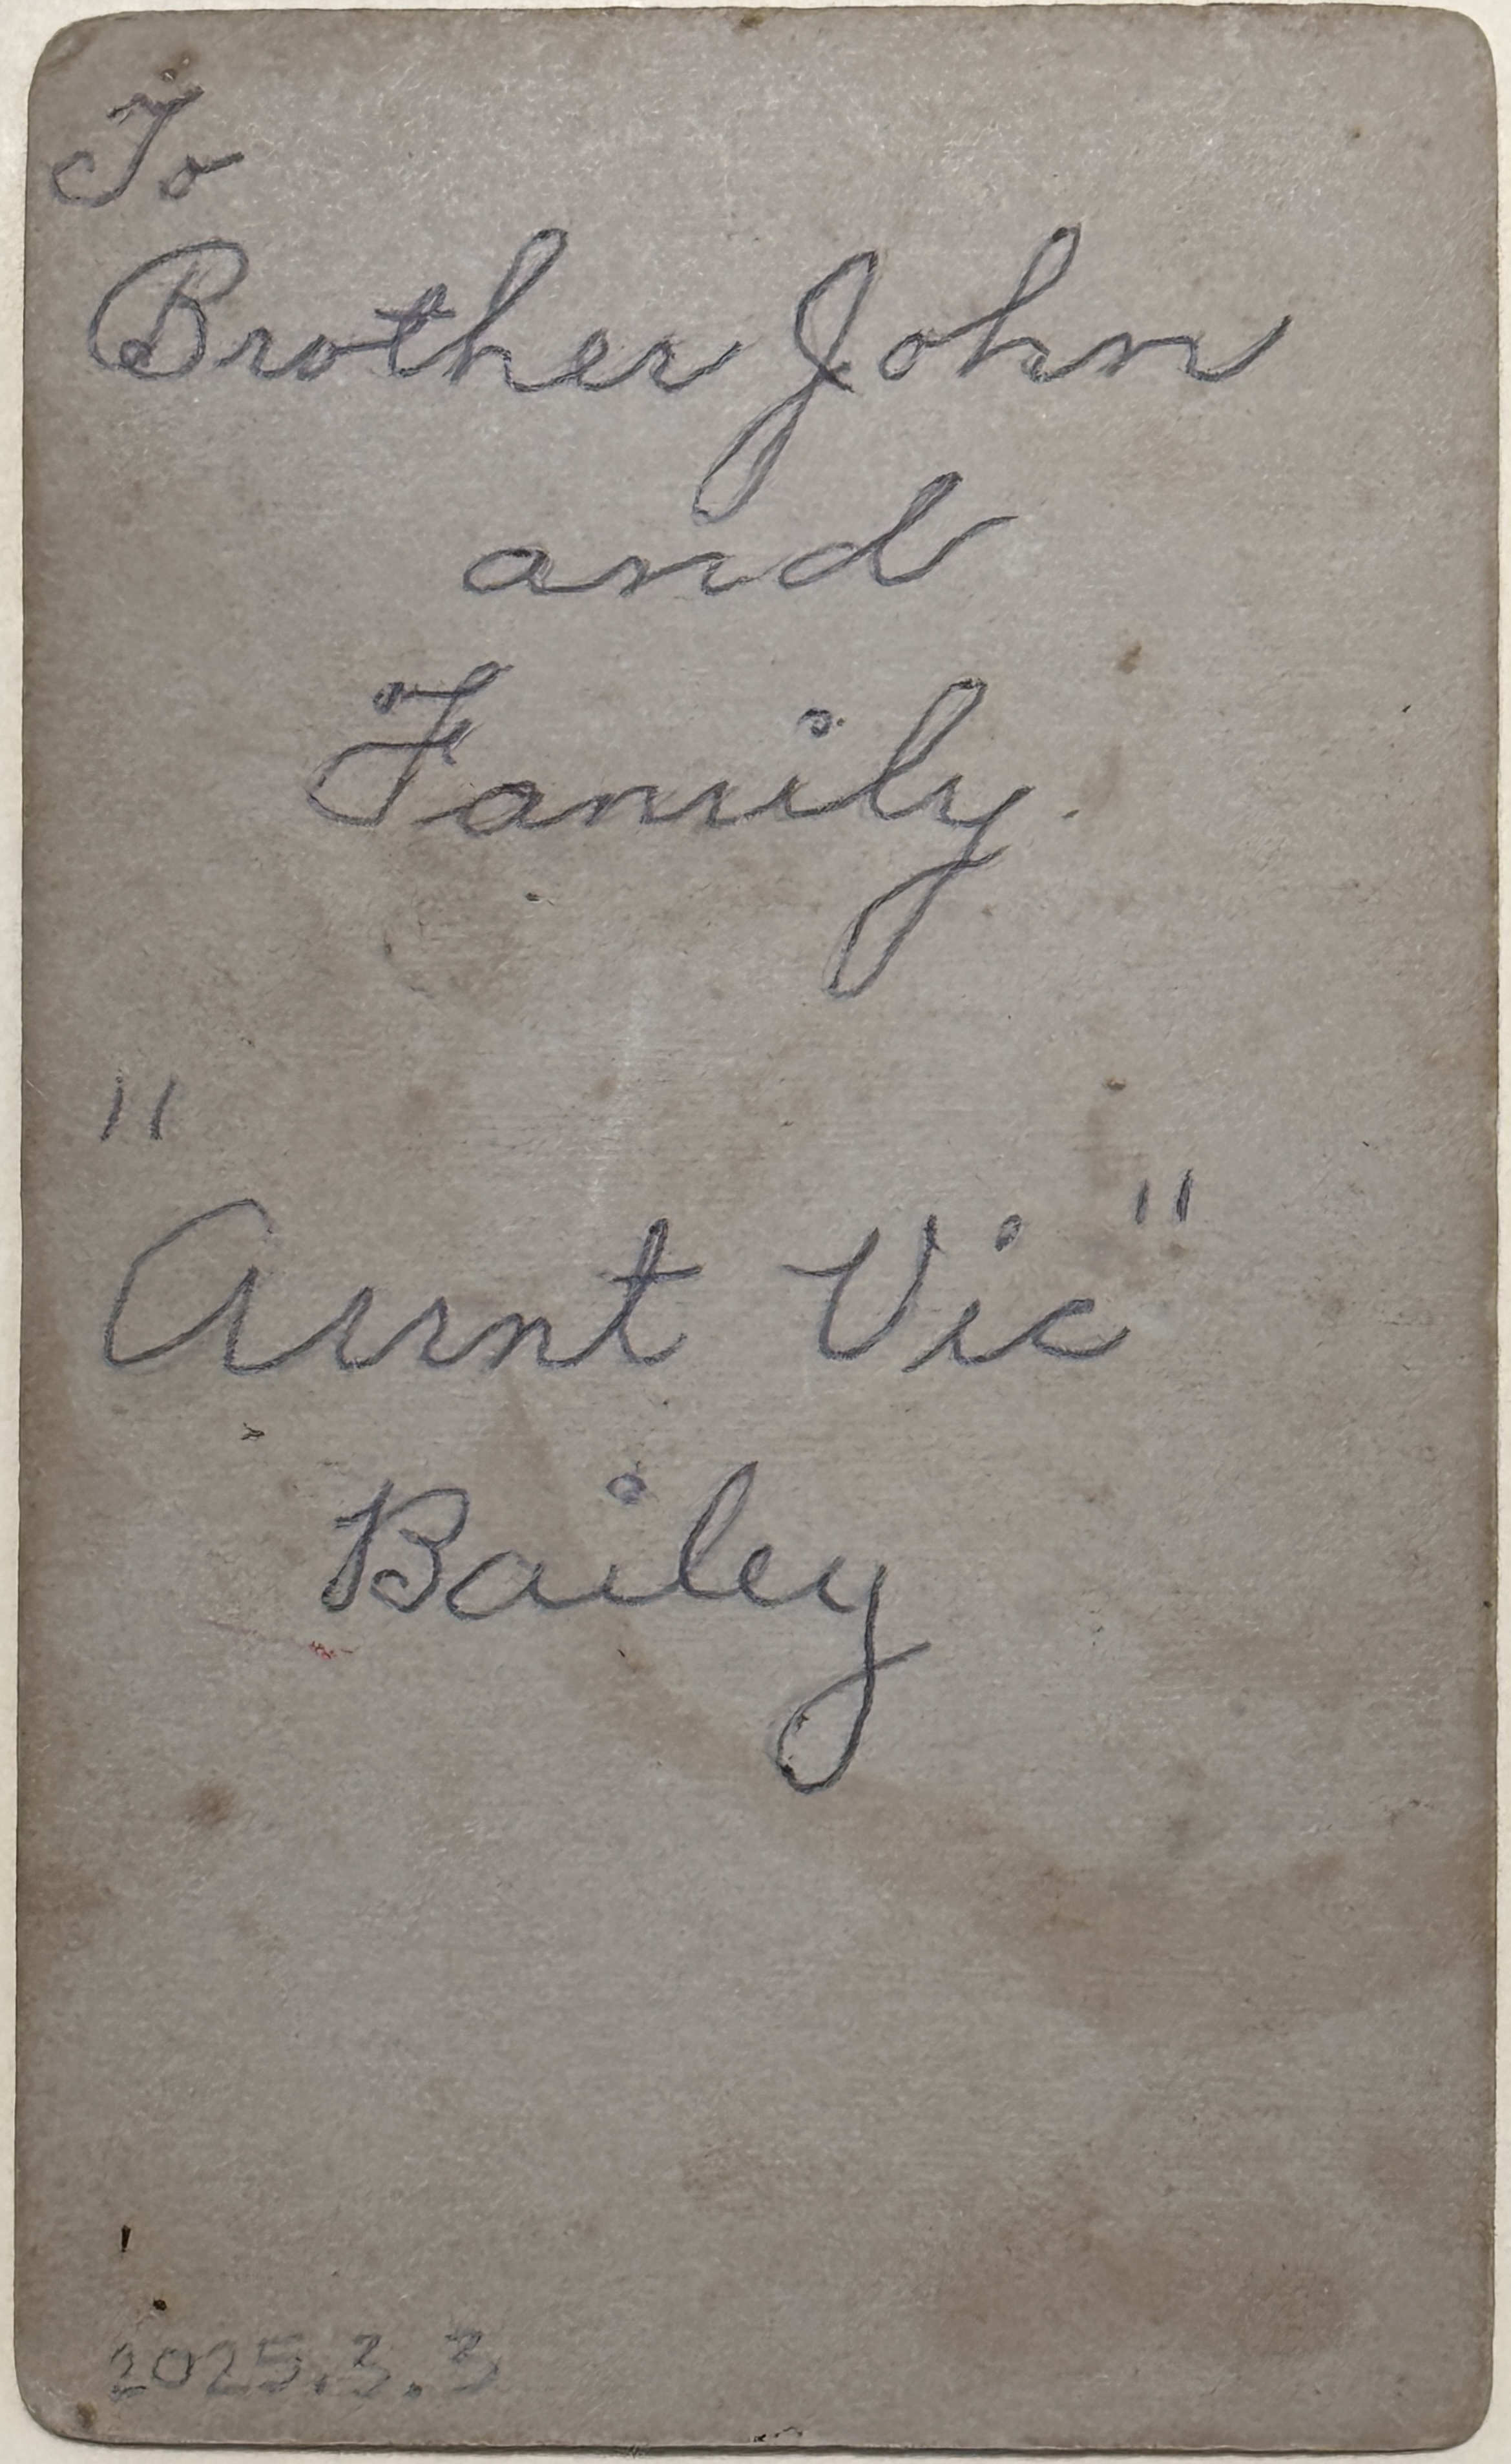 To
Brother John
and
Family.
"
Aunt Vic"
Bailey
2025.3.3